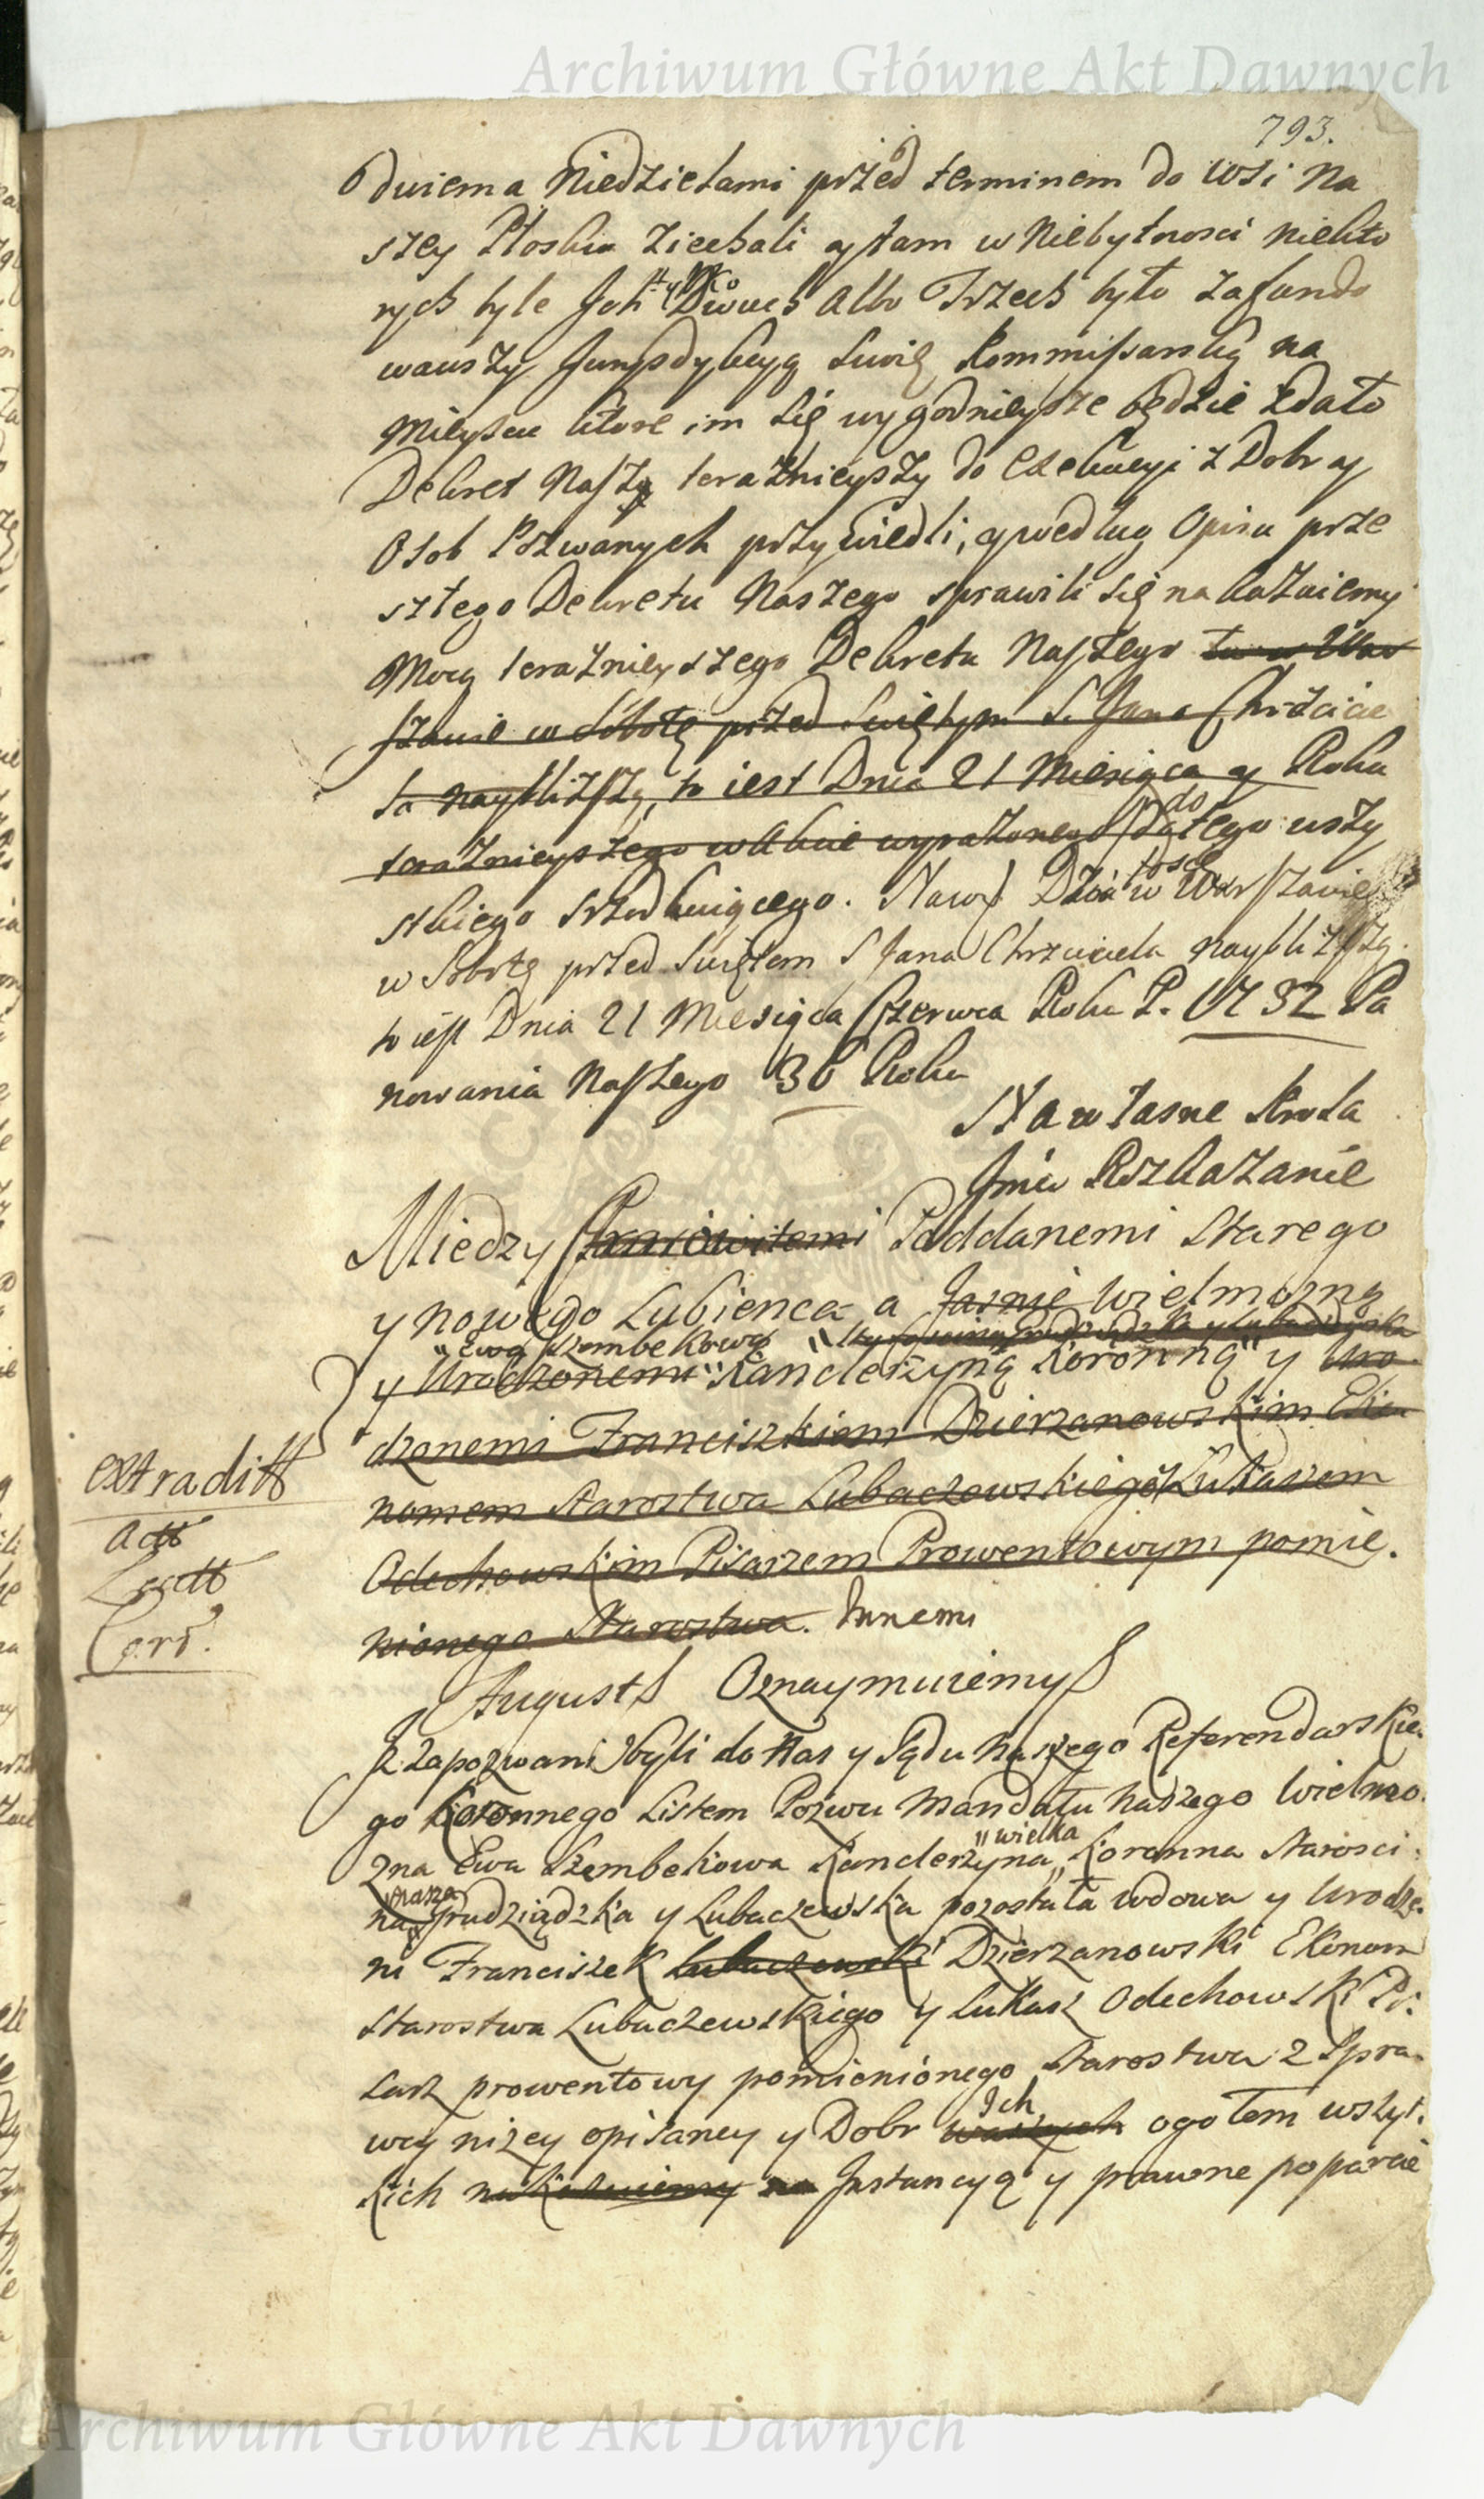 Archiwum Główne Akt Dawnych
793.
dwiema Niedzielami przed terminem do wsi Na
szey Płoskie ziechali y tam w Niebytnosci niekto
rych byle Ich Dwuch albo Trzech było zafundo
wawszy Jurysdykcyą swoię Kommissarską na
Mieyscu ktore im się wygodnieysze będzie zdało
Dekret Nasz teraznieyszy do Exekucyi z Dobr y
Osob Pozwanych przywiedli, y według Opisu prze
szłego Dekretu Naszego sprawili się nakazuiemy
Mocą teraznieyszego Dekretu Naszego tu w War
szawie w Sobotę przed Swiętym S. Jana Chrzcicie
la naybliższą, to iest Dnia 21 Miesiąca y Roku
teraznieyszego w Akcie wyrażonego do tego wszy
stkiego
w Sobotę przed Swiętem S Jana Chrzciciela naybliższą.
to iest Dnia 21 Miesiąca Czerwca Roku P. 1732 Pa
nowania Naszego 36 Roku
Na własne Krola
Jmci Rozkazanie
Miedzy Pracowitemi Poddanemi Starego
y nowego Lubienca a Jasnie Wielmozną
"Ewą Szembekową
y Urodzonemi Kanclerzyną Koronną" y Uro
dzonemi Franciszkiem Dzierzanowskim Eko
nomem Starostwa Lubaczowskiego y Łukaszem
Odechowskim Pisarzem Prowentowym pomie.
nionego Starostwa. Innemi
extraditt
Actt
Lectt
Corr.
August Oznaymuiemy
Iz Zapozwani byli do Nas y Sądu Naszego Referendarskie.
go Koronnego Listem Pozwu Mandatu Naszego Wielmo.
"wielka
zna Ewa Szembekowa Kanclerzyna Koronna Starosci:
nasza
na Grudziądzka y Lubaczewska pozostała wdowa y Urodze.
ni Franciszek Lubaczewski Dzierzanowski Ekonom
Starostwa Lubaczewskiego y Łukasz Odechowski Pi:
sarz prowentowy pomienionego Starostwa z Spra.
Ich
wy nizey opisaney y Dobr waszych ogołem wszyt.
kich nakazuiemy na Instancyą y prawne poparcie
Archiwum Główne Akt Dawnych